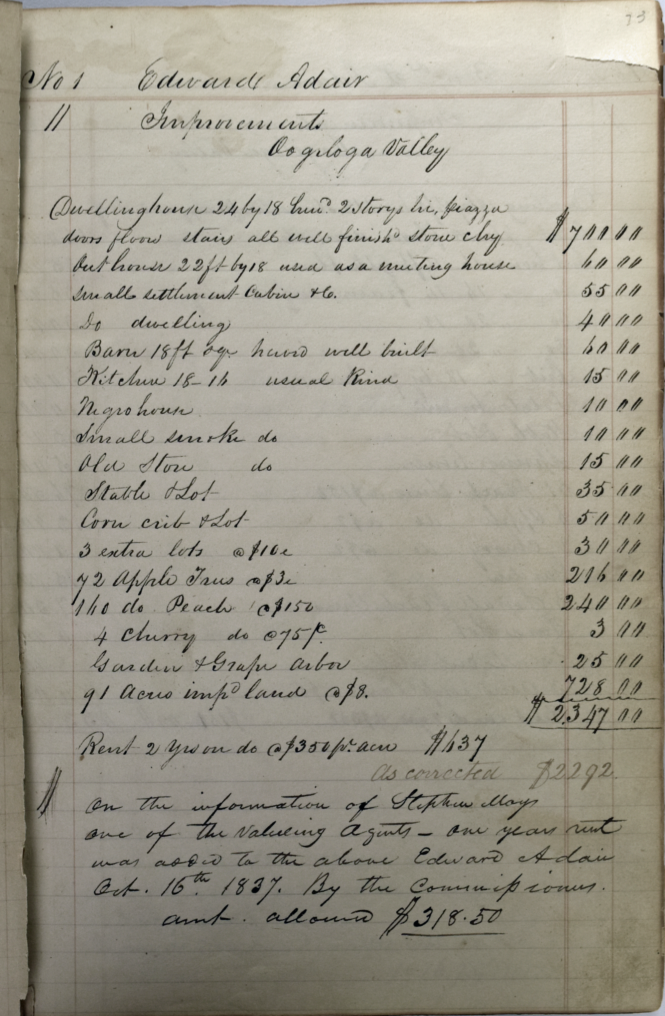 73
No 1 Edward Adair
" Improvements
Oogiloga Valley
Dwelling house 24 by 18 2 storys piazza
doors floors stairs all well finishd stone chy $700 00
Out house 22 ft by 18 used as a meeting house 60 00
Small settlement Cabin &c. 55 00
Do dwelling 40 00
Barn 18 ft sqr hewd well built 60 00
Kitchen 18-16 usual kind 15 00
Negro house 10 00
Small smoke do 10 00
Old Store do 15 00
Stable & Lot 35 00
Corn crib & Lot 50 00
3 extra lots @ $10 e 30 00
72 Apple Trees @ $3 e 216 00
160 do. Peach @ $150 240 00
4 Cherry do @ 75 pc 3 00
Garden & Grape Arbor 25 00
91 Acres impd land @ $8. 728 00
$2347 00
Rent 2 Yrs on do @ $350 pr acre $637
As corrected $2292.
" On the information of Stephen Mays
one of the Valueing Agents – one years rent
was added to the above Edward Adair
Oct. 16th 1837. By the Commissioners.
amt. allowed $318.50